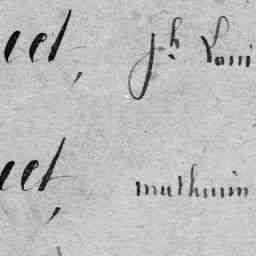 eet, jh Loui
eet, mathurin